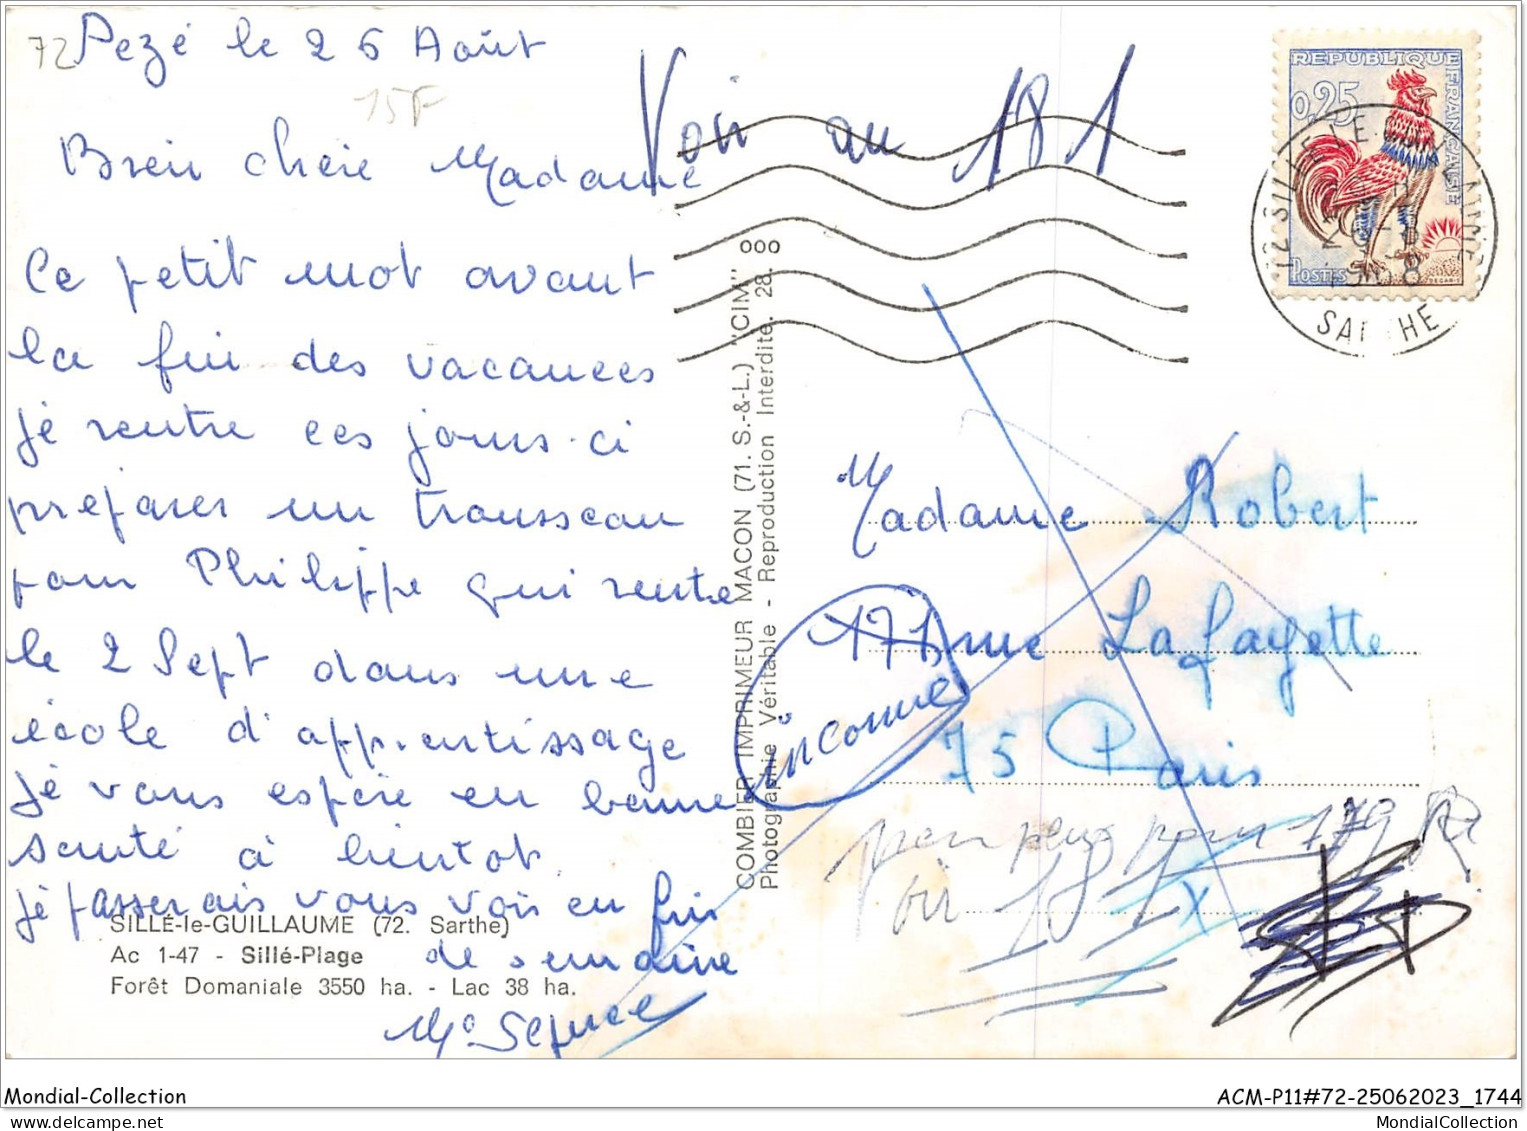 72 Pezé le 26 Août
15F
Voir au 181
Bien chère Madame
Ce petit mot avant
la fin des vacances
je rentre ces jours-ci
préparer un trousseau
pour Philippe qui rentre
le 2 Sept dans une
école d'apprentissage
je vous espère en bonne
santé à bientôt
je passerais vous voir en fin
de semaine
SILLÉ-le-GUILLAUME (72. Sarthe)
Ac 1-47 - Sillé-Plage
Forêt Domaniale 3550 ha. - Lac 38 ha.
COMBIER IMPRIMEUR MACON (71. S.-&-L.) "CIM"
Photographie Véritable - Reproduction Interdite. 28.
REPUBLIQUE FRANÇAISE
0,25
POSTES
DECARIS
72 SILLE LE GUILLAUME
26-8
SARTHE
Madame Robert
171 rue La Fayette
75 Paris
inconnue
Voir 181 x
Mondial-Collection
ACM-P11#72-25062023_1744
MondialCollection